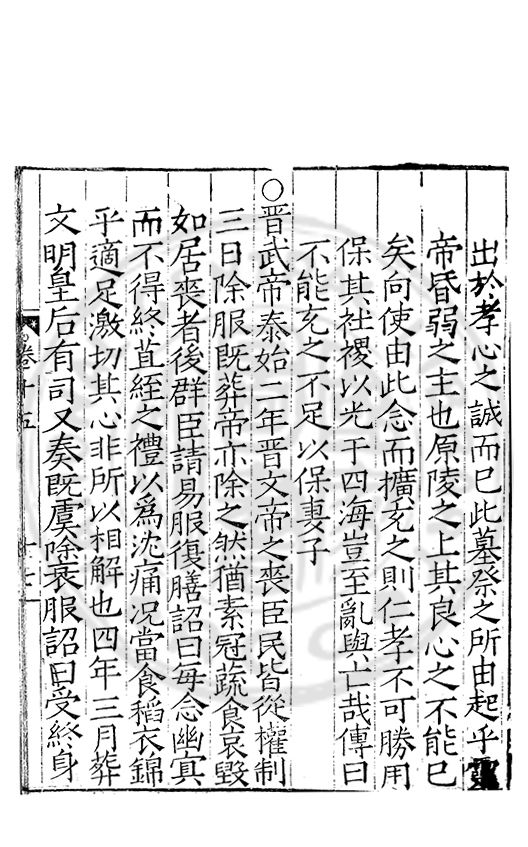 出於孝心之誠而已此墓祭之所由起乎靈
帝昏弱之主也原陵之上其良心之不能已
矣向使由此念而擴充之則仁孝不可勝用
保其社稷以光于四海豈至亂與亡哉傳曰
不能充之不足以保妻子
○晋武帝泰始二年晋文帝之喪臣民皆從權制
三日除服既葬帝亦除之然猶素冠蔬食哀毀
如居喪者後群臣請易服復膳詔曰每念幽冥
而不得終苴絰之禮以爲沈痛况當食稻衣錦
乎適足激切其心非所以相解也四年三月葬
文明皇后有司又奏既虞除衰服詔曰受終身
卷十五
十七